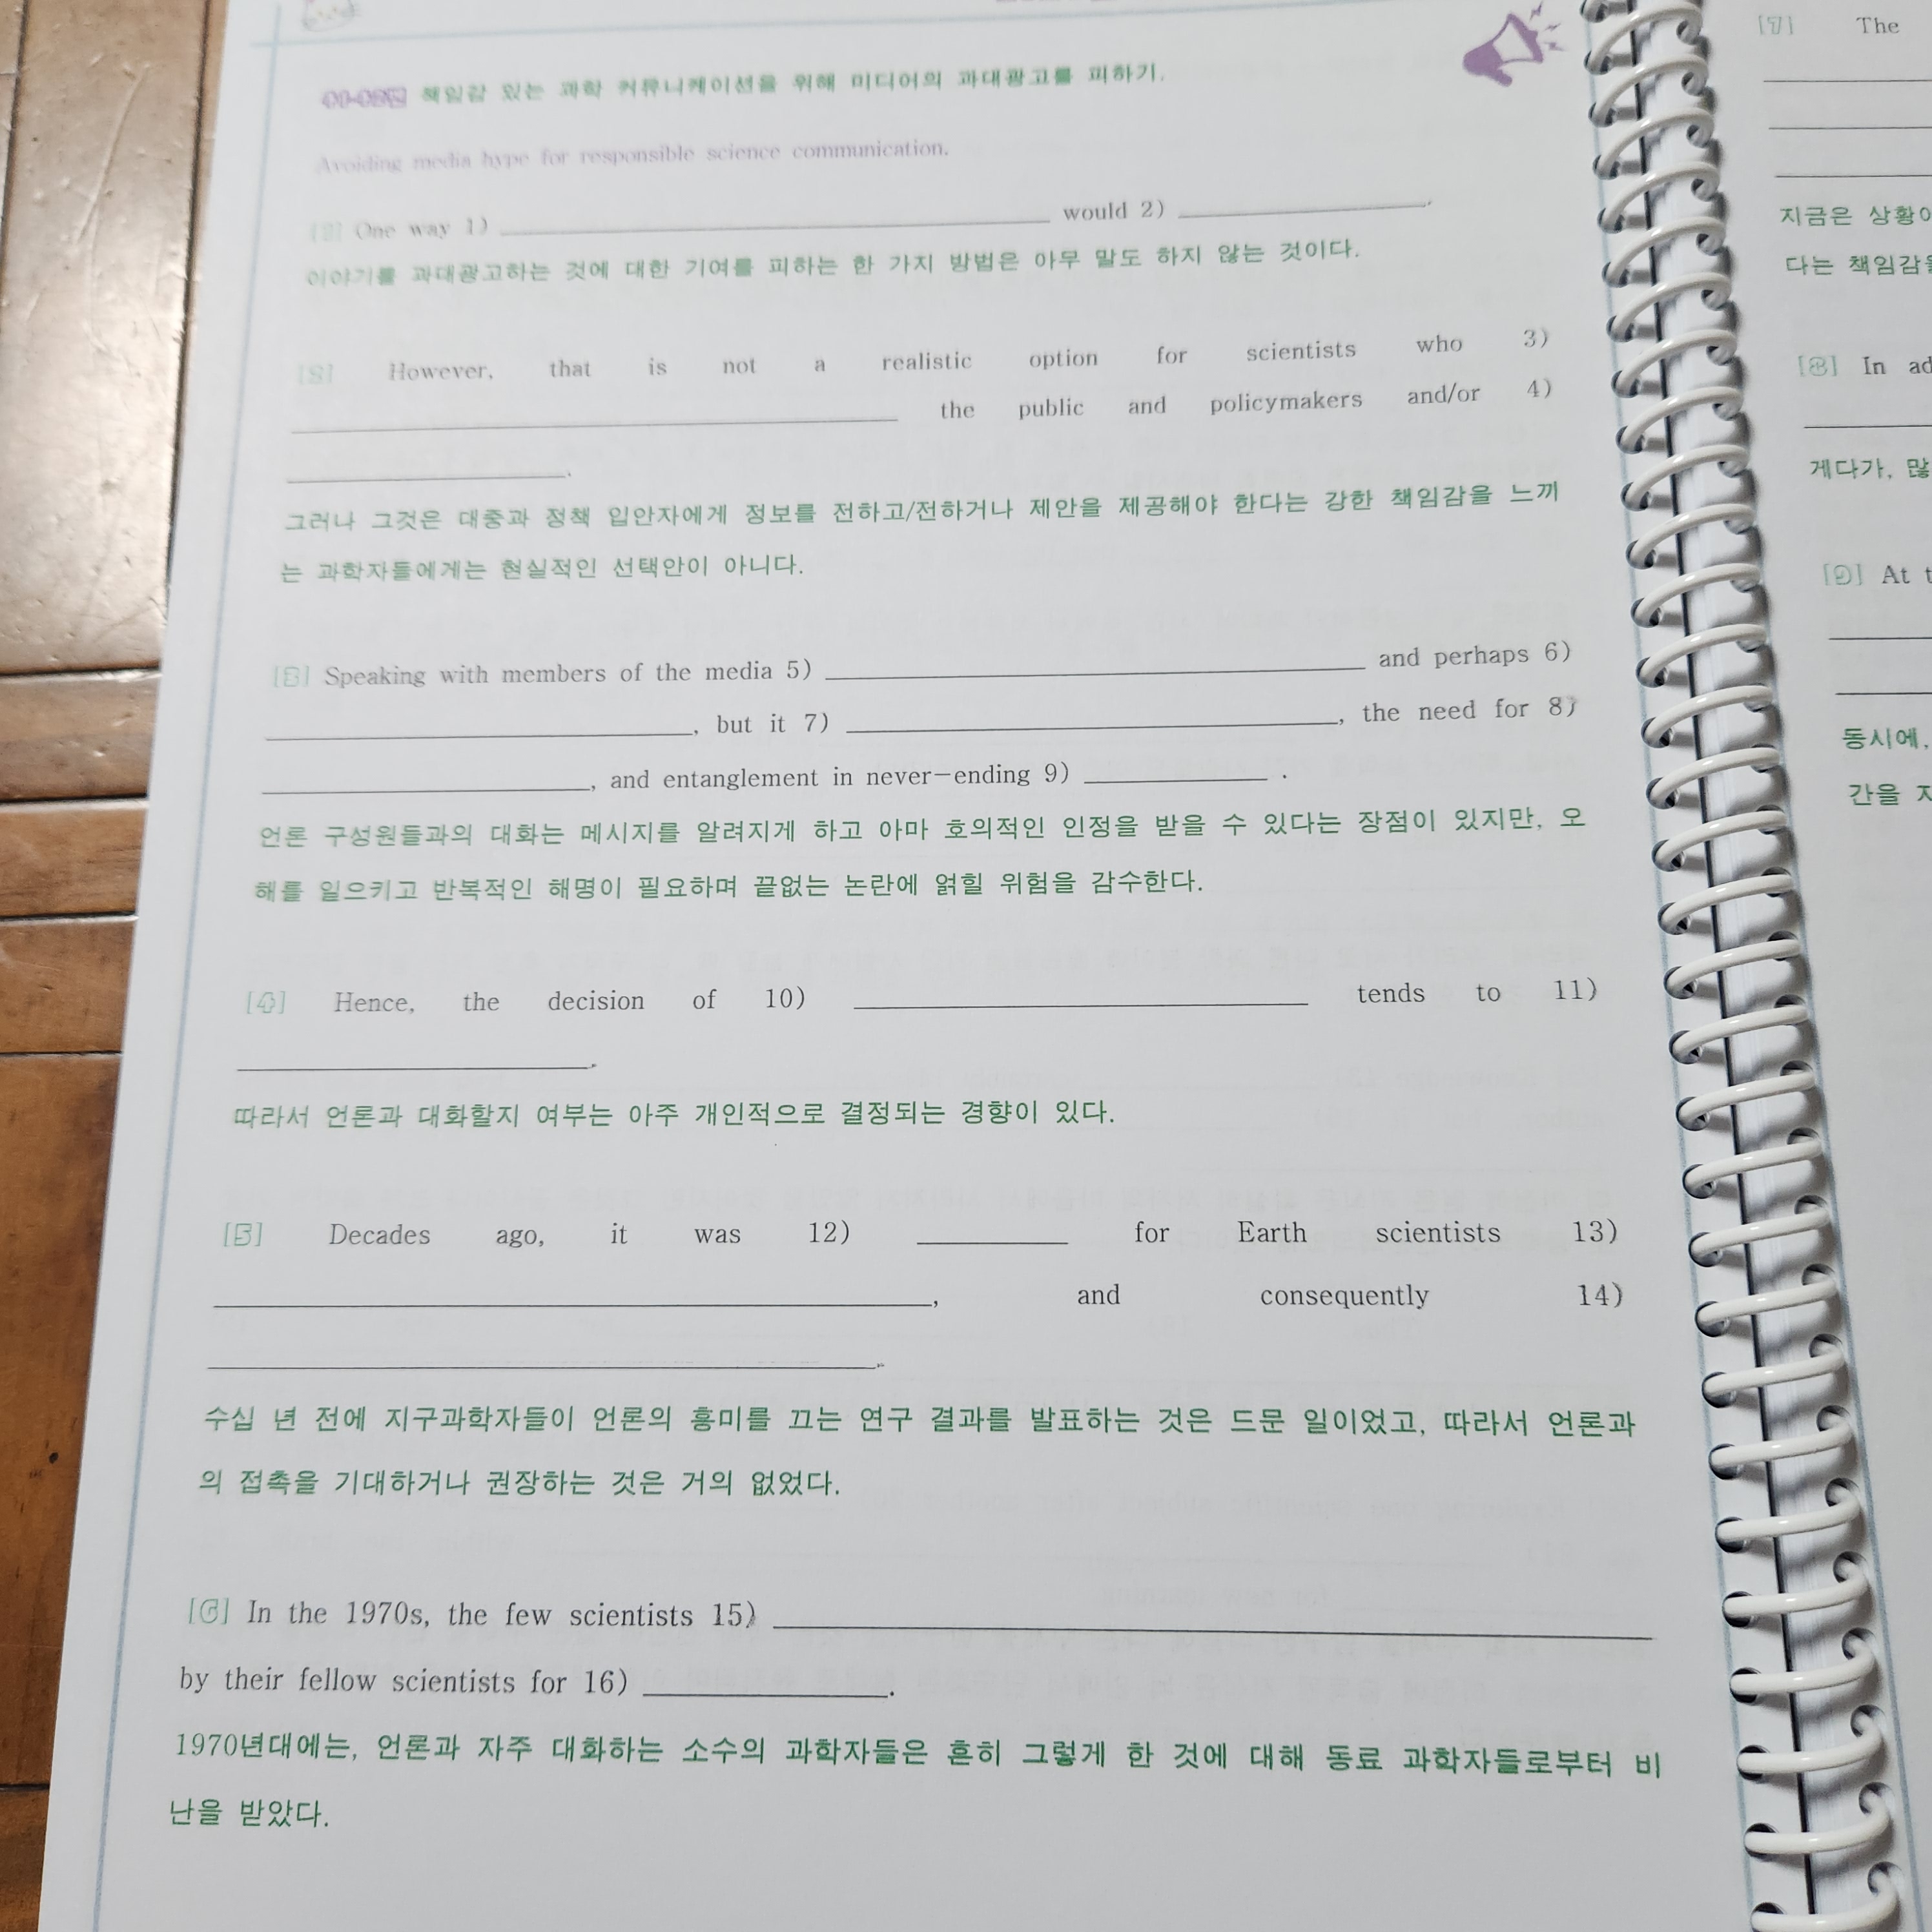 책임감 있는 과학 커뮤니케이션을 위해 미디어의 과대광고를 피하기.
Avoiding media hype for responsible science communication.
One way 1) ______ would 2) ______.
이야기를 과대광고하는 것에 대한 기여를 피하는 한 가지 방법은 아무 말도 하지 않는 것이다.
[2] However, that is not a realistic option for scientists who 3)
______ the public and policymakers and/or 4)
______.
그러나 그것은 대중과 정책 입안자에게 정보를 전하고/전하거나 제안을 제공해야 한다는 강한 책임감을 느끼
는 과학자들에게는 현실적인 선택안이 아니다.
[3] Speaking with members of the media 5) ______ and perhaps 6)
______, but it 7) ______, the need for 8)
______, and entanglement in never-ending 9) ______ .
언론 구성원들과의 대화는 메시지를 알려지게 하고 아마 호의적인 인정을 받을 수 있다는 장점이 있지만, 오
해를 일으키고 반복적인 해명이 필요하며 끝없는 논란에 얽힐 위험을 감수한다.
[4] Hence, the decision of 10) ______ tends to 11)
______.
따라서 언론과 대화할지 여부는 아주 개인적으로 결정되는 경향이 있다.
[5] Decades ago, it was 12) ______ for Earth scientists 13)
______, and consequently 14)
______.
수십 년 전에 지구과학자들이 언론의 흥미를 끄는 연구 결과를 발표하는 것은 드문 일이었고, 따라서 언론과
의 접촉을 기대하거나 권장하는 것은 거의 없었다.
[6] In the 1970s, the few scientists 15) ______
by their fellow scientists for 16) ______.
1970년대에는, 언론과 자주 대화하는 소수의 과학자들은 흔히 그렇게 한 것에 대해 동료 과학자들로부터 비
난을 받았다.
[7] The
지금은 상황이
다는 책임감을
[8] In ad
게다가, 많
[9] At t
동시에,
간을 지